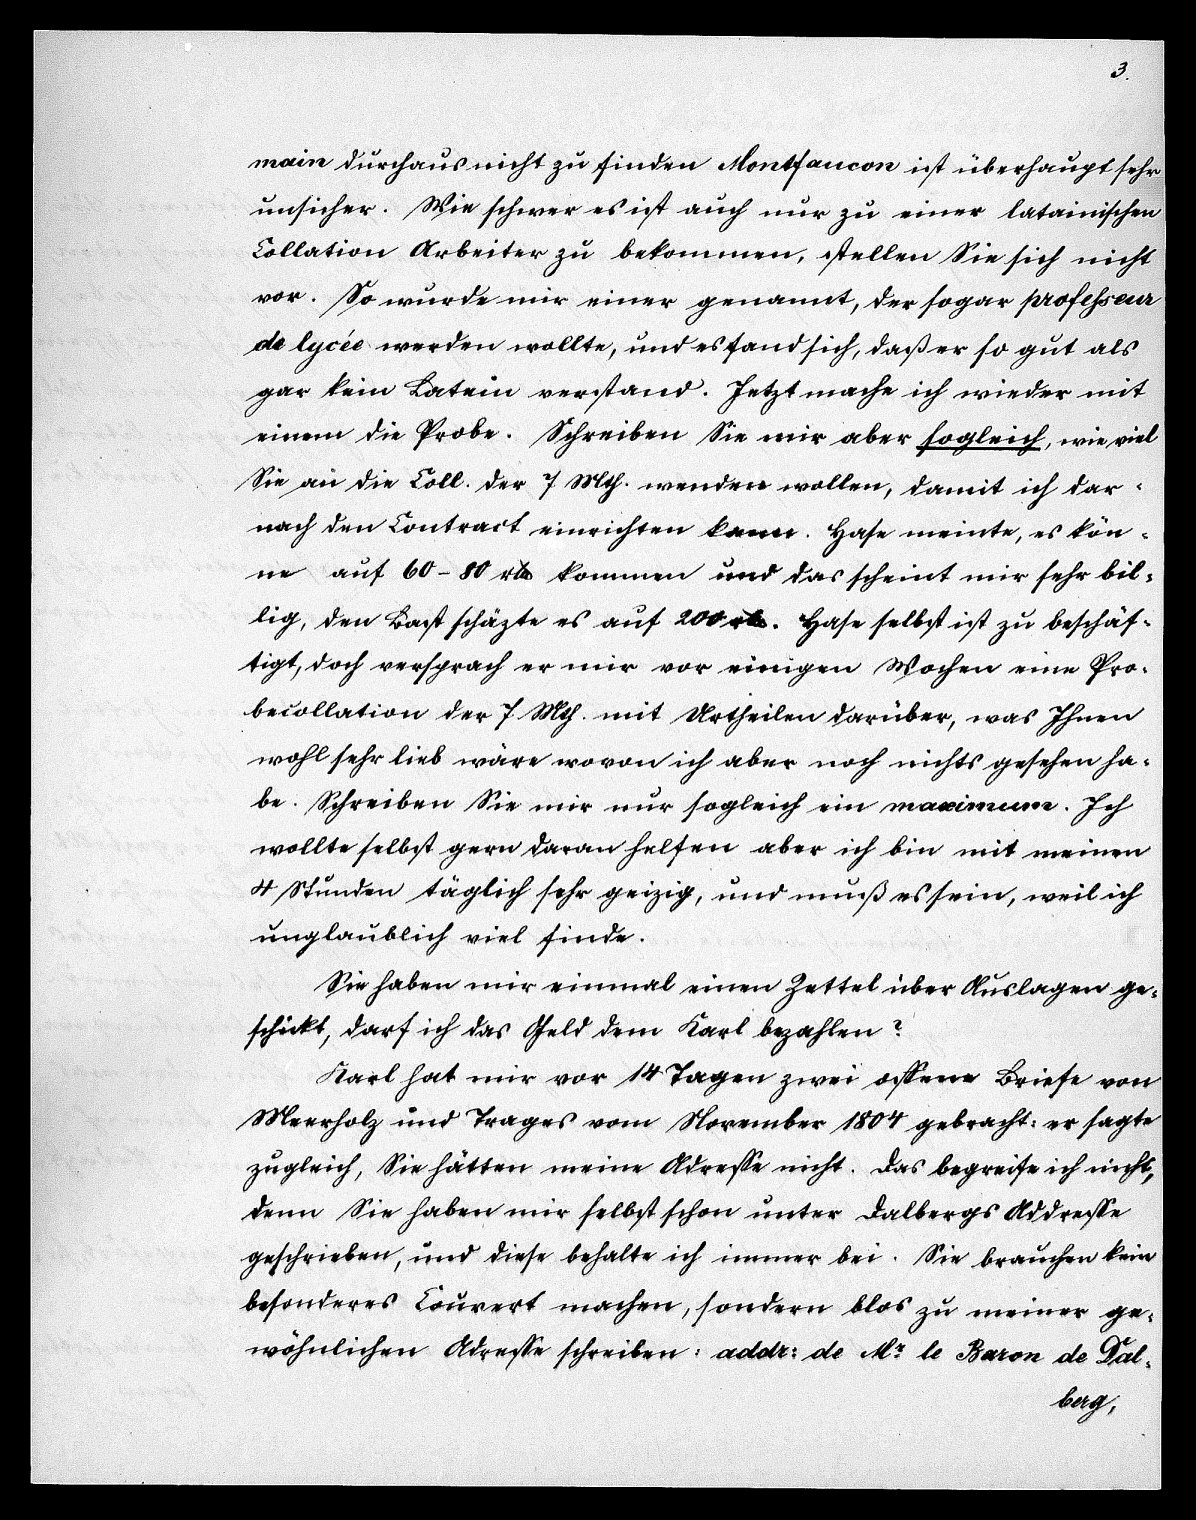 3.
main durchaus nicht zu finden Montfaucon ist überhaupt sehr
unsicher. Wie schwer es ist auch nur zu einer latainischen
Collation Arbeiter zu bekommen, stellen Sie sich nicht
vor. So wurde mir einer genannt, der sogar professeur
de lycée werden wollte, und es fand sich, daß er so gut als
gar kein Latein verstand. Jetzt mache ich wieder mit
einem die Probe. Schreiben Sie mir aber sogleich, wie viel
Sie an die Coll. der 7 Msc. wenden wollen, damit ich dar-
nach den Contract einrichten kann. Hase meinte, es kön-
ne auf 60-80 rth kommen und das scheint mir sehr bil-
lig, den Bast schäzte es auf 200 rth. Hase selbst ist zu beschäf-
tigt, doch versprach er mir vor einigen Wochen eine Pro-
becollation der 7 Msc. mit Urtheilen darüber, was Ihnen
wohl sehr lieb wäre wovon ich aber noch nichts gesehen ha-
be. Schreiben Sie mir nur sogleich ein maximum. Ich
wollte selbst gern daran helfen aber ich bin mit meinen
4 Stunden täglich sehr geizig, und muß es sein, weil ich
unglaublich viel finde.
Sie haben mir einmal einen Zettel über Auslagen ge-
schickt, darf ich das Geld dem Karl bezahlen?
Karl hat mir vor 14 Tagen zwei offene Briefe von
Meerholz und Trages vom November 1804 gebracht: er sagte
zugleich, Sie hätten meine Adresse nicht. Das begreife ich nicht,
denn Sie haben mir selbst schon unter Dalbergs Addresse
geschrieben, und diese behalte ich immer bei. Sie brauchen kein
besonderes Couvert machen, sondern blos zu meiner ge-
wöhnlichen Adresse schreiben: addr: de Mr. le Baron de Dal-
berg,